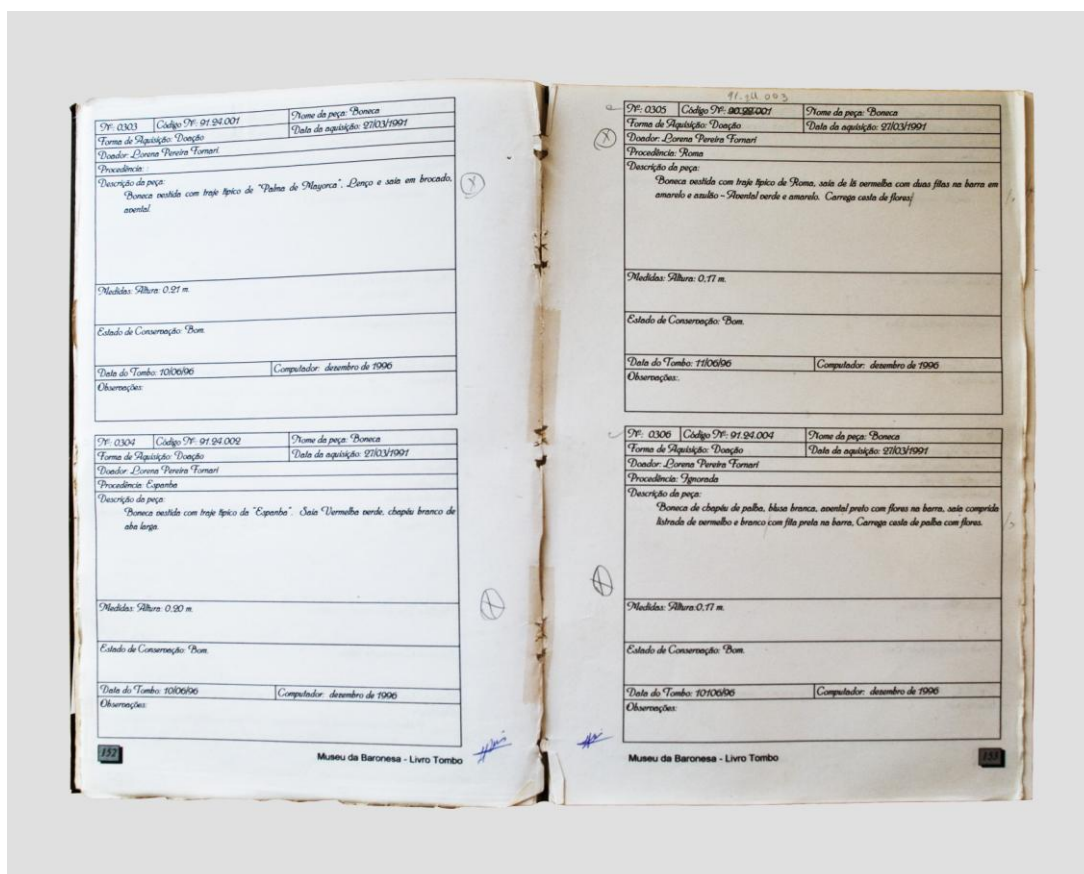 Nº: 0303 Código Nº: 91.24.001 Nome da peça: Boneca
Forma de Aquisição: Doação Data da aquisição: 27/03/1991
Doador: Lorena Pereira Fornari.
Procedência: :
Descrição da peça:
Boneca vestida com traje típico de "Palma de Mayorca". Lenço e saia em brocado,
avental.
Medidas: Altura: 0.21 m.
Estado de Conservação: Bom.
Data do Tombo: 10/06/96 Computador: dezembro de 1996
Observações:
Nº: 0304 Código Nº: 91.24.002 Nome da peça: Boneca
Forma de Aquisição: Doação Data da aquisição: 27/03/1991
Doador: Lorena Pereira Fornari
Procedência: Espanha
Descrição da peça:
Boneca vestida com traje típico da "Espanha". Saia Vermelha verde, chapéu branco de
aba larga.
Medidas: Altura: 0.20 m.
Estado de Conservação: Bom.
Data do Tombo: 10/06/96 Computador: dezembro de 1996
Observações:
152 Museu da Baronesa - Livro Tombo
91.24.003
Nº: 0305 Código Nº: 90.22.001 Nome da peça: Boneca
Forma de Aquisição: Doação Data da aquisição: 27/03/1991
Doador: Lorena Pereira Fornari
Procedência: Roma
Descrição da peça:
Boneca vestida com traje típico de Roma, saia de lã vermelha com duas fitas na barra em
amarelo e azulão - Avental verde e amarelo. Carrega cesta de flores
Medidas: Altura: 0,17 m.
Estado de Conservação: Bom.
Data do Tombo: 11/06/96 Computador: dezembro de 1996
Observações:.
Nº: 0306 Código Nº: 91.24.004 Nome da peça: Boneca
Forma de Aquisição: Doação Data da aquisição: 27/03/1991
Doador: Lorena Pereira Fornari
Procedência: Ignorada
Descrição da peça:
Boneca de chapéu de palha, blusa branca, avental preto com flores na barra, saia comprida
listrada de vermelho e branco com fita preta na barra, Carrega cesta de palha com flores.
Medidas: Altura:0,17 m.
Estado de Conservação: Bom.
Data do Tombo: 10106/96 Computador: dezembro de 1996
Observações:
Museu da Baronesa - Livro Tombo 153